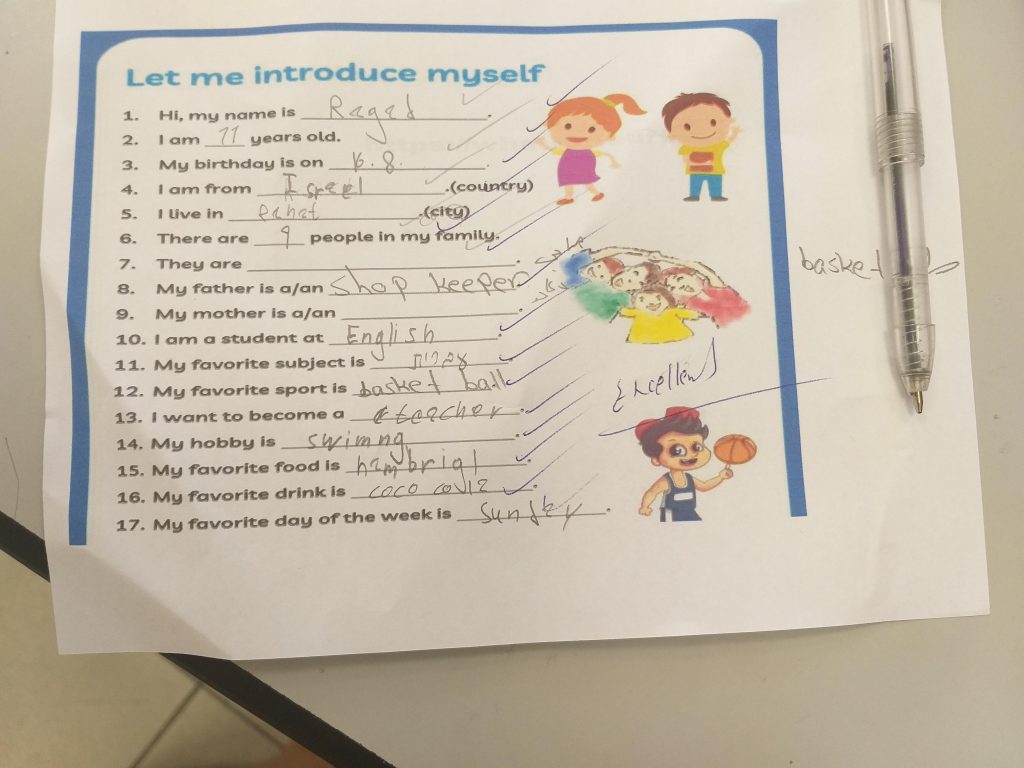 Let me introduce myself
1. Hi, my name is Ragad.
2. I am 11 years old.
3. My birthday is on 16.8.
4. I am from Israel.(country)
5. I live in Rahat.(city)
6. There are 9 people in my family.
7. They are ___.
8. My father is a/an shop keeper
9. My mother is a/an ___.
10. I am a student at English.
11. My favorite subject is עברית.
12. My favorite sport is basket ball
13. I want to become a teacher.
14. My hobby is swimng.
15. My favorite food is hambrigl.
16. My favorite drink is coco coula.
17. My favorite day of the week is Sunday.
Excellent
basket